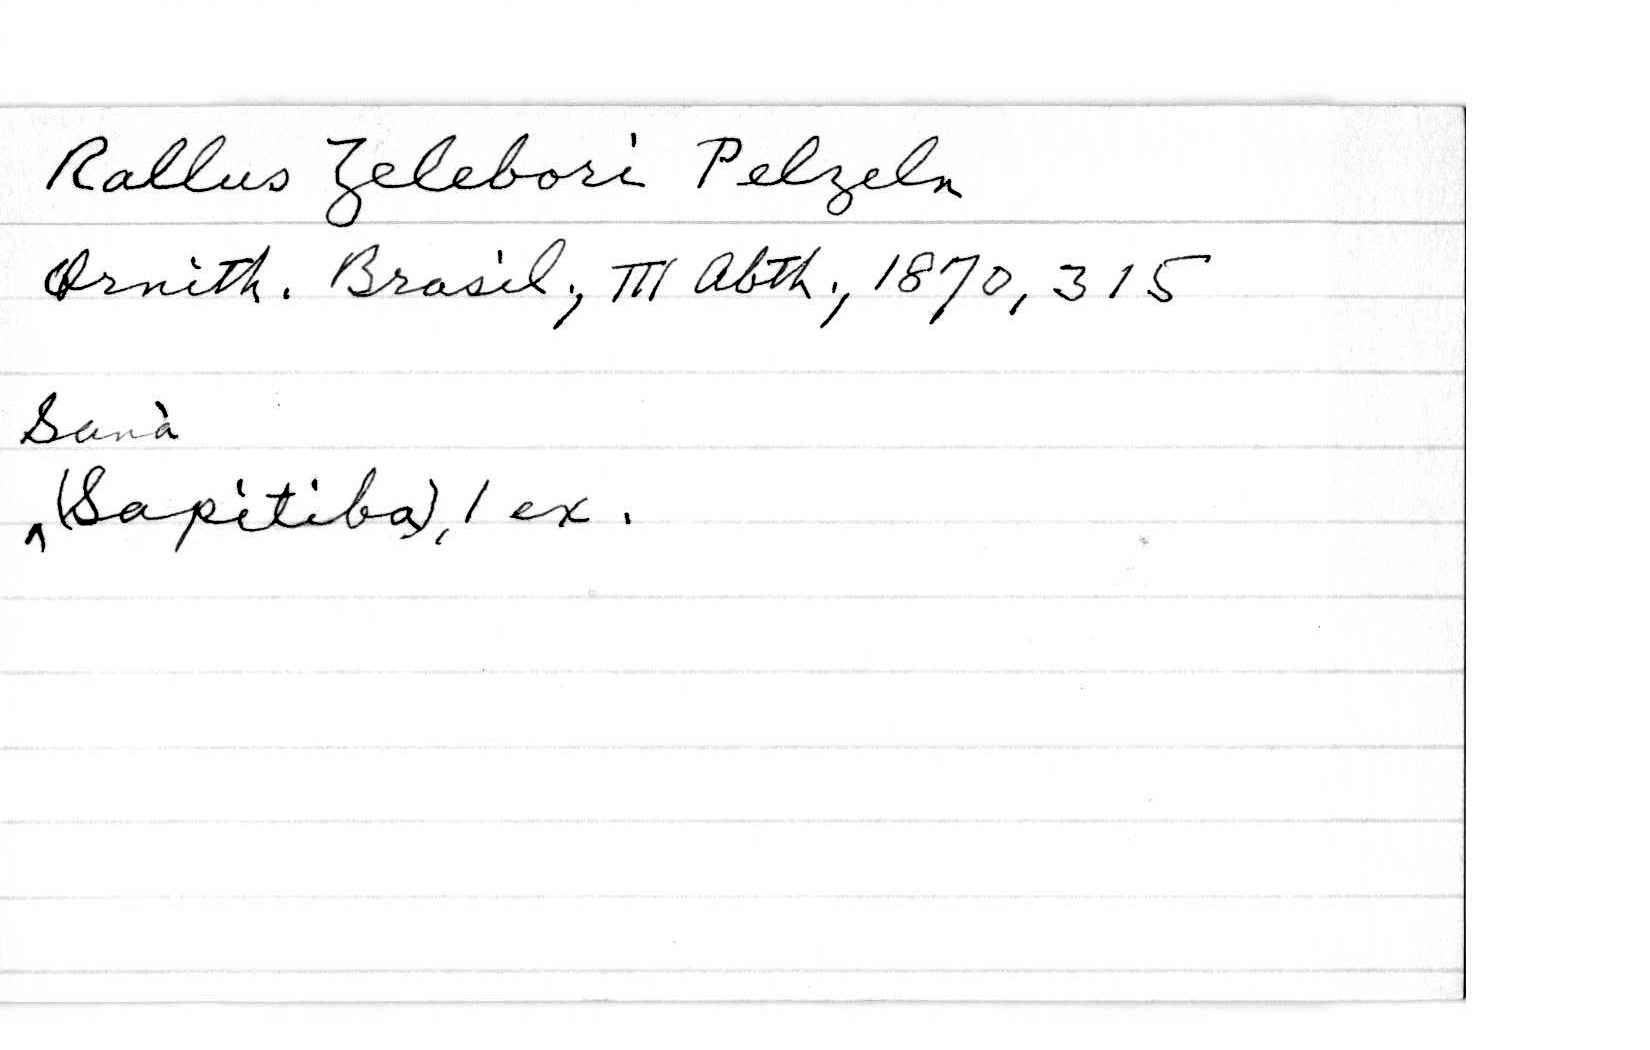 Rallus Zelebori Pelzeln
Ornith. Brasil., III Abth., 1870, 315
Sanà
^(Sapitiba), 1 ex.